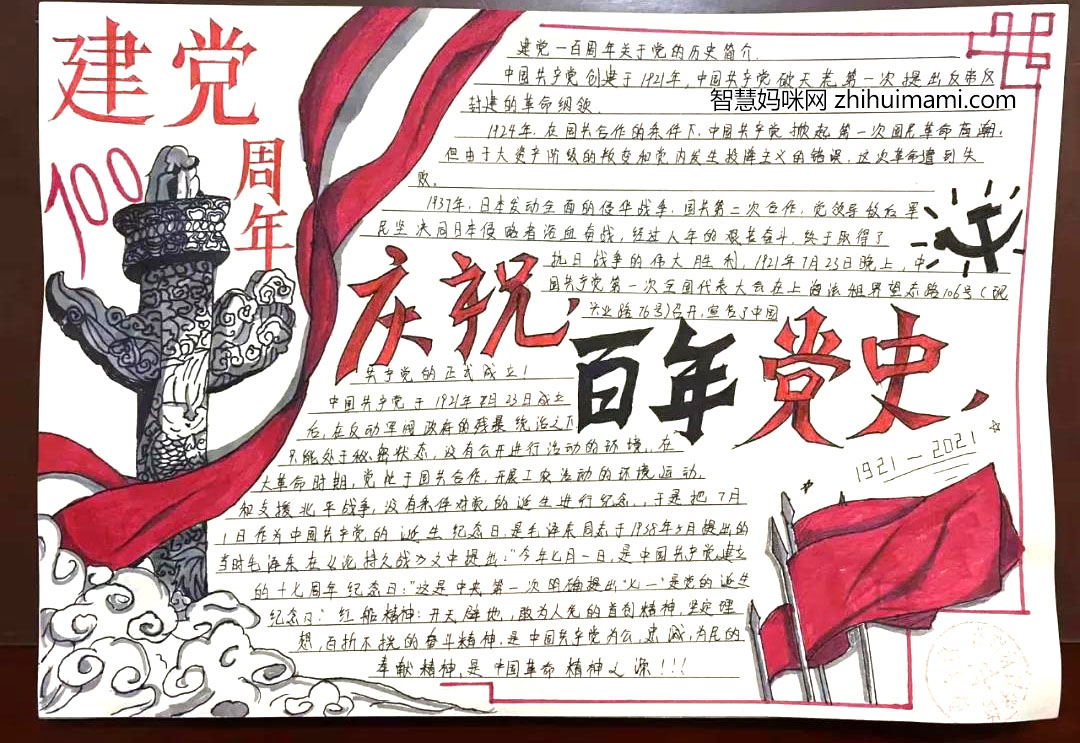 建党
100
周年
建党一百周年关于党的历史简介.
中国共产党创建于1921年,中国共产党破天荒第一次提出反帝反
封建的革命纲领.
智慧妈咪网 zhihuimami.com
1924年,在国共合作的条件下,中国共产党掀起第一次国民革命高潮,
但由于大资产阶级的叛变和党内发生投降主义的错误,这次革命遭到失
败.
1937年,日本发动全面的侵华战争,国共第二次合作,党领导敌后军
民坚决同日本侵略者浴血奋战,经过八年的艰苦奋斗,终于取得了
抗日战争的伟大胜利,1921年7月23日晚上,中
国共产党第一次全国代表大会在上海法租界望志路106号(现
兴业路76号)召开,宣告了中国
庆祝,
百年党史,
1921-2021
共产党的正式成立!
中国共产党于1921年7月23日成立
后,在反动军阀政府的残暴统治之下
只能处于秘密状态,没有公开进行活动的环境,在
大革命时期,党忙于国共合作,开展工农活动的环境运动,
和支援北平战争,没有条件对党的诞生进行纪念,于是把7月
1日作为中国共产党的诞生纪念日,是毛泽东同志于1938年5月提出的
当时毛泽东在《论持久战》文中提出:"今年七月一日,是中国共产党建立
的十七周年纪念日:"这是中央第一次明确提出"七一"是党的诞生
纪念日" 红船精神:开天辟地,敢为人先的首创精神,坚定理
想,百折不挠的奋斗精神,是中国共产党为公,忠诚为民的
奉献精神,是中国革命精神之源!!!